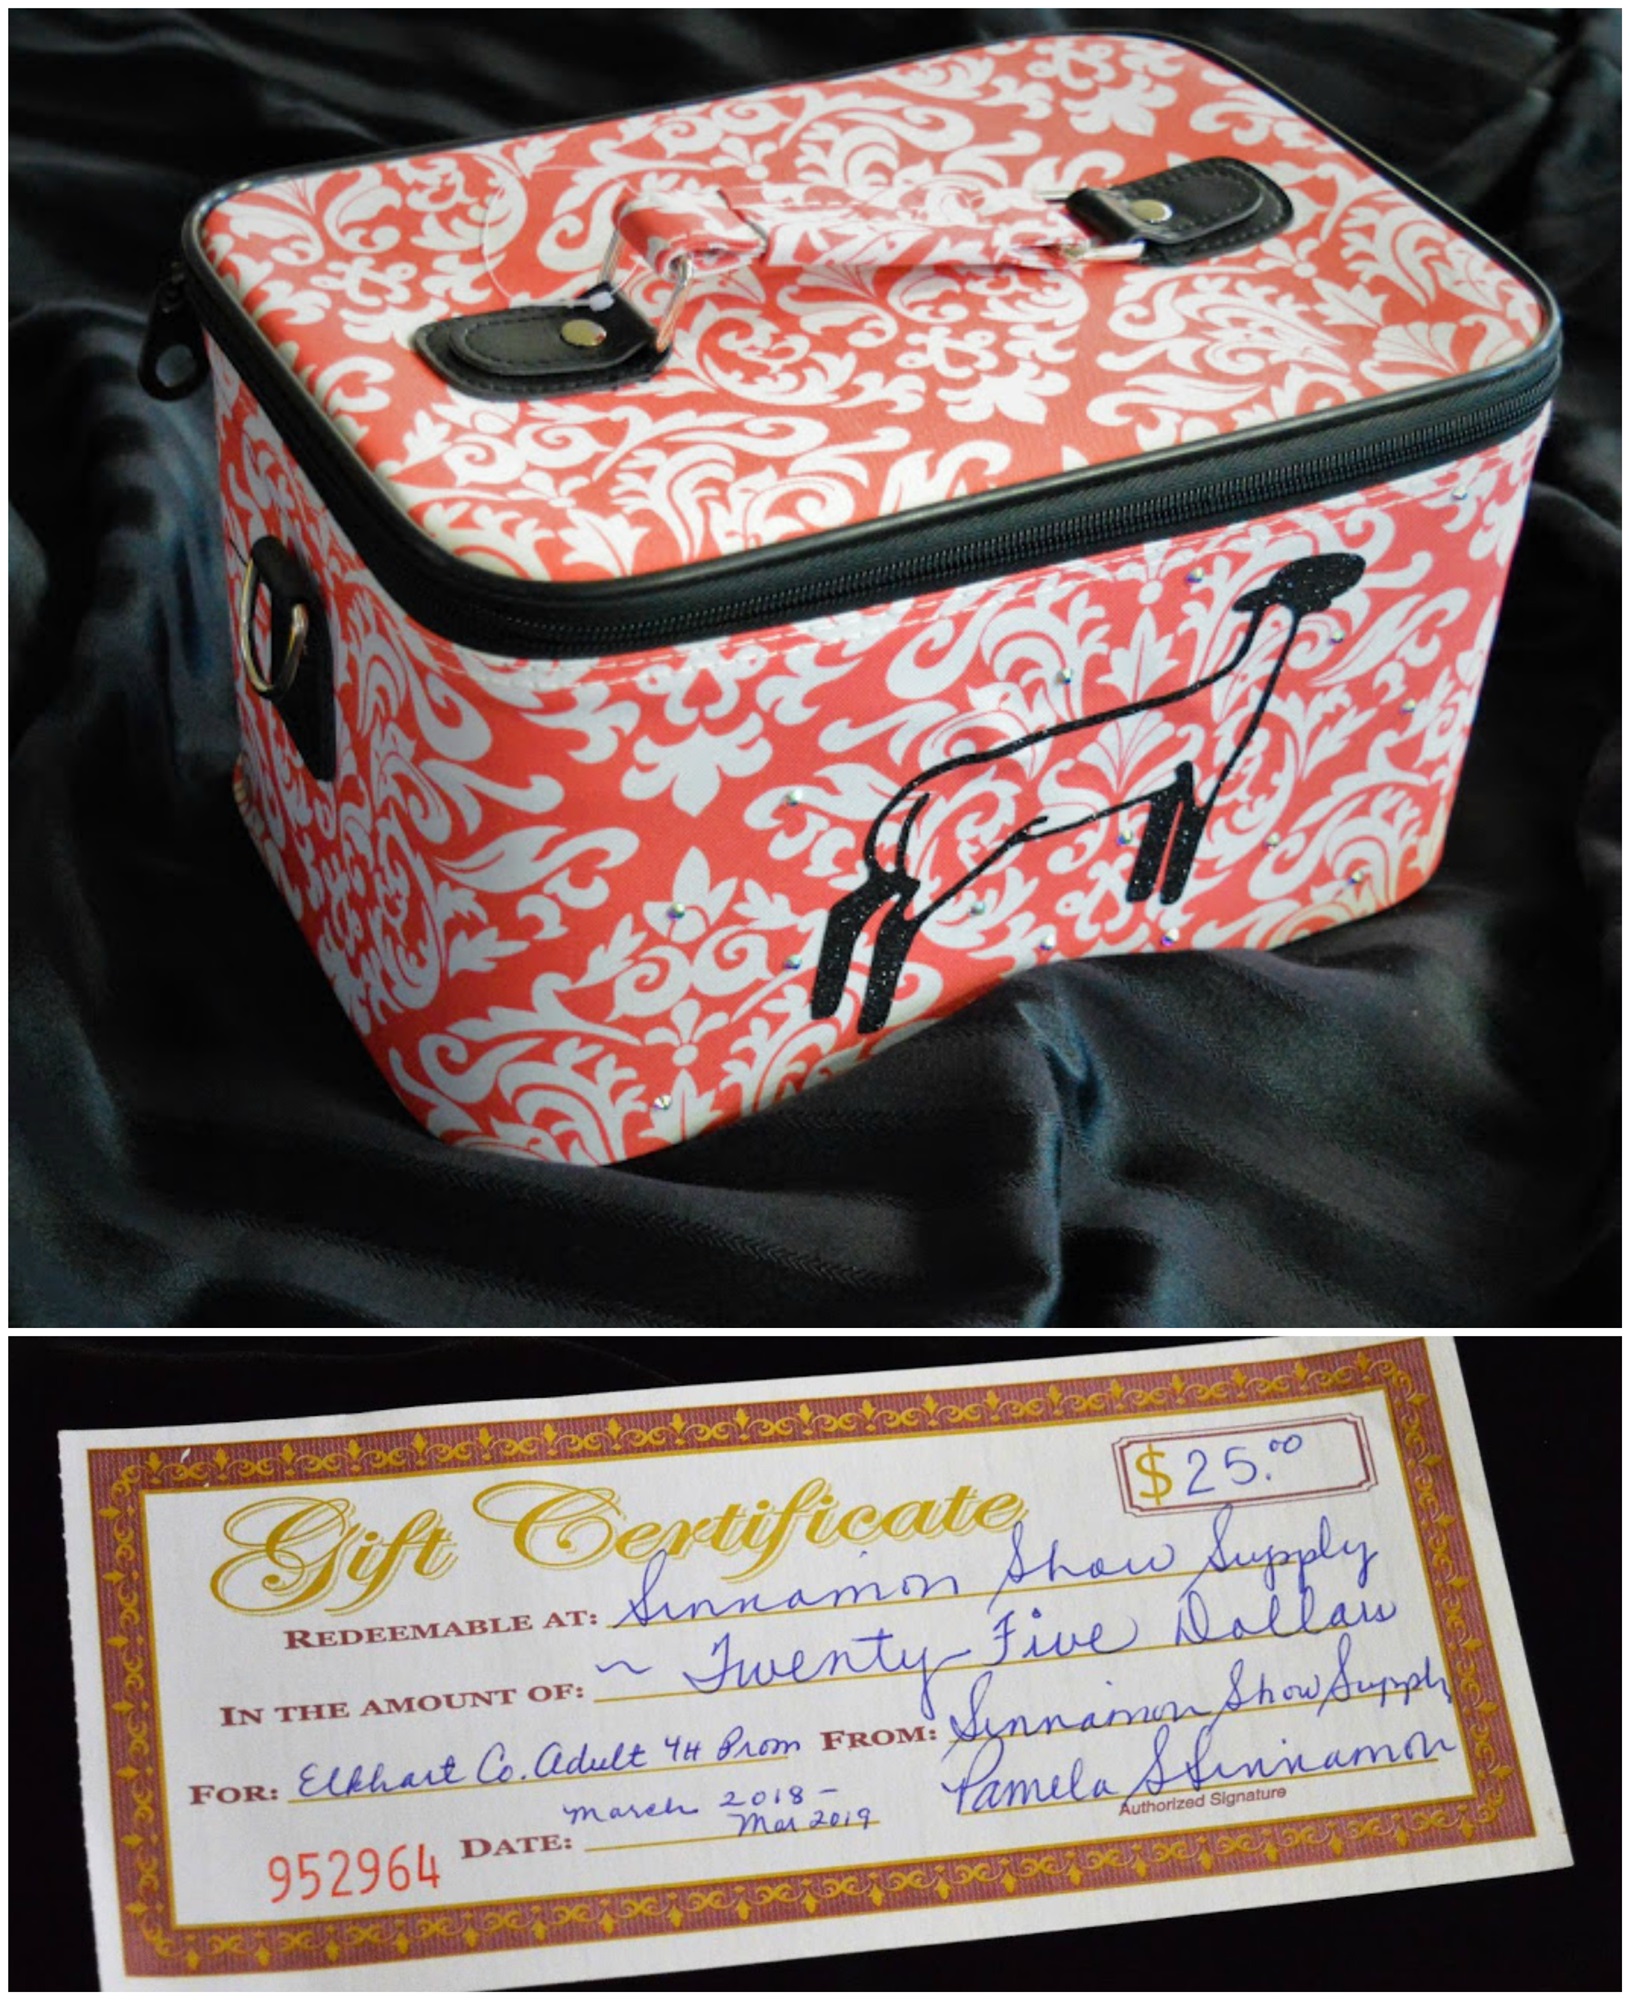 Gift Certificate
$25.00
REDEEMABLE AT: Sinnamon Show Supply
IN THE AMOUNT OF: ~ Twenty-Five Dollars
FOR: Elkhart Co. Adult 4H Prom FROM: Sinnamon Show Supply
Pamela S Sinnamon
Authorized Signature
952964 DATE: March 2018 -
Mar 2019